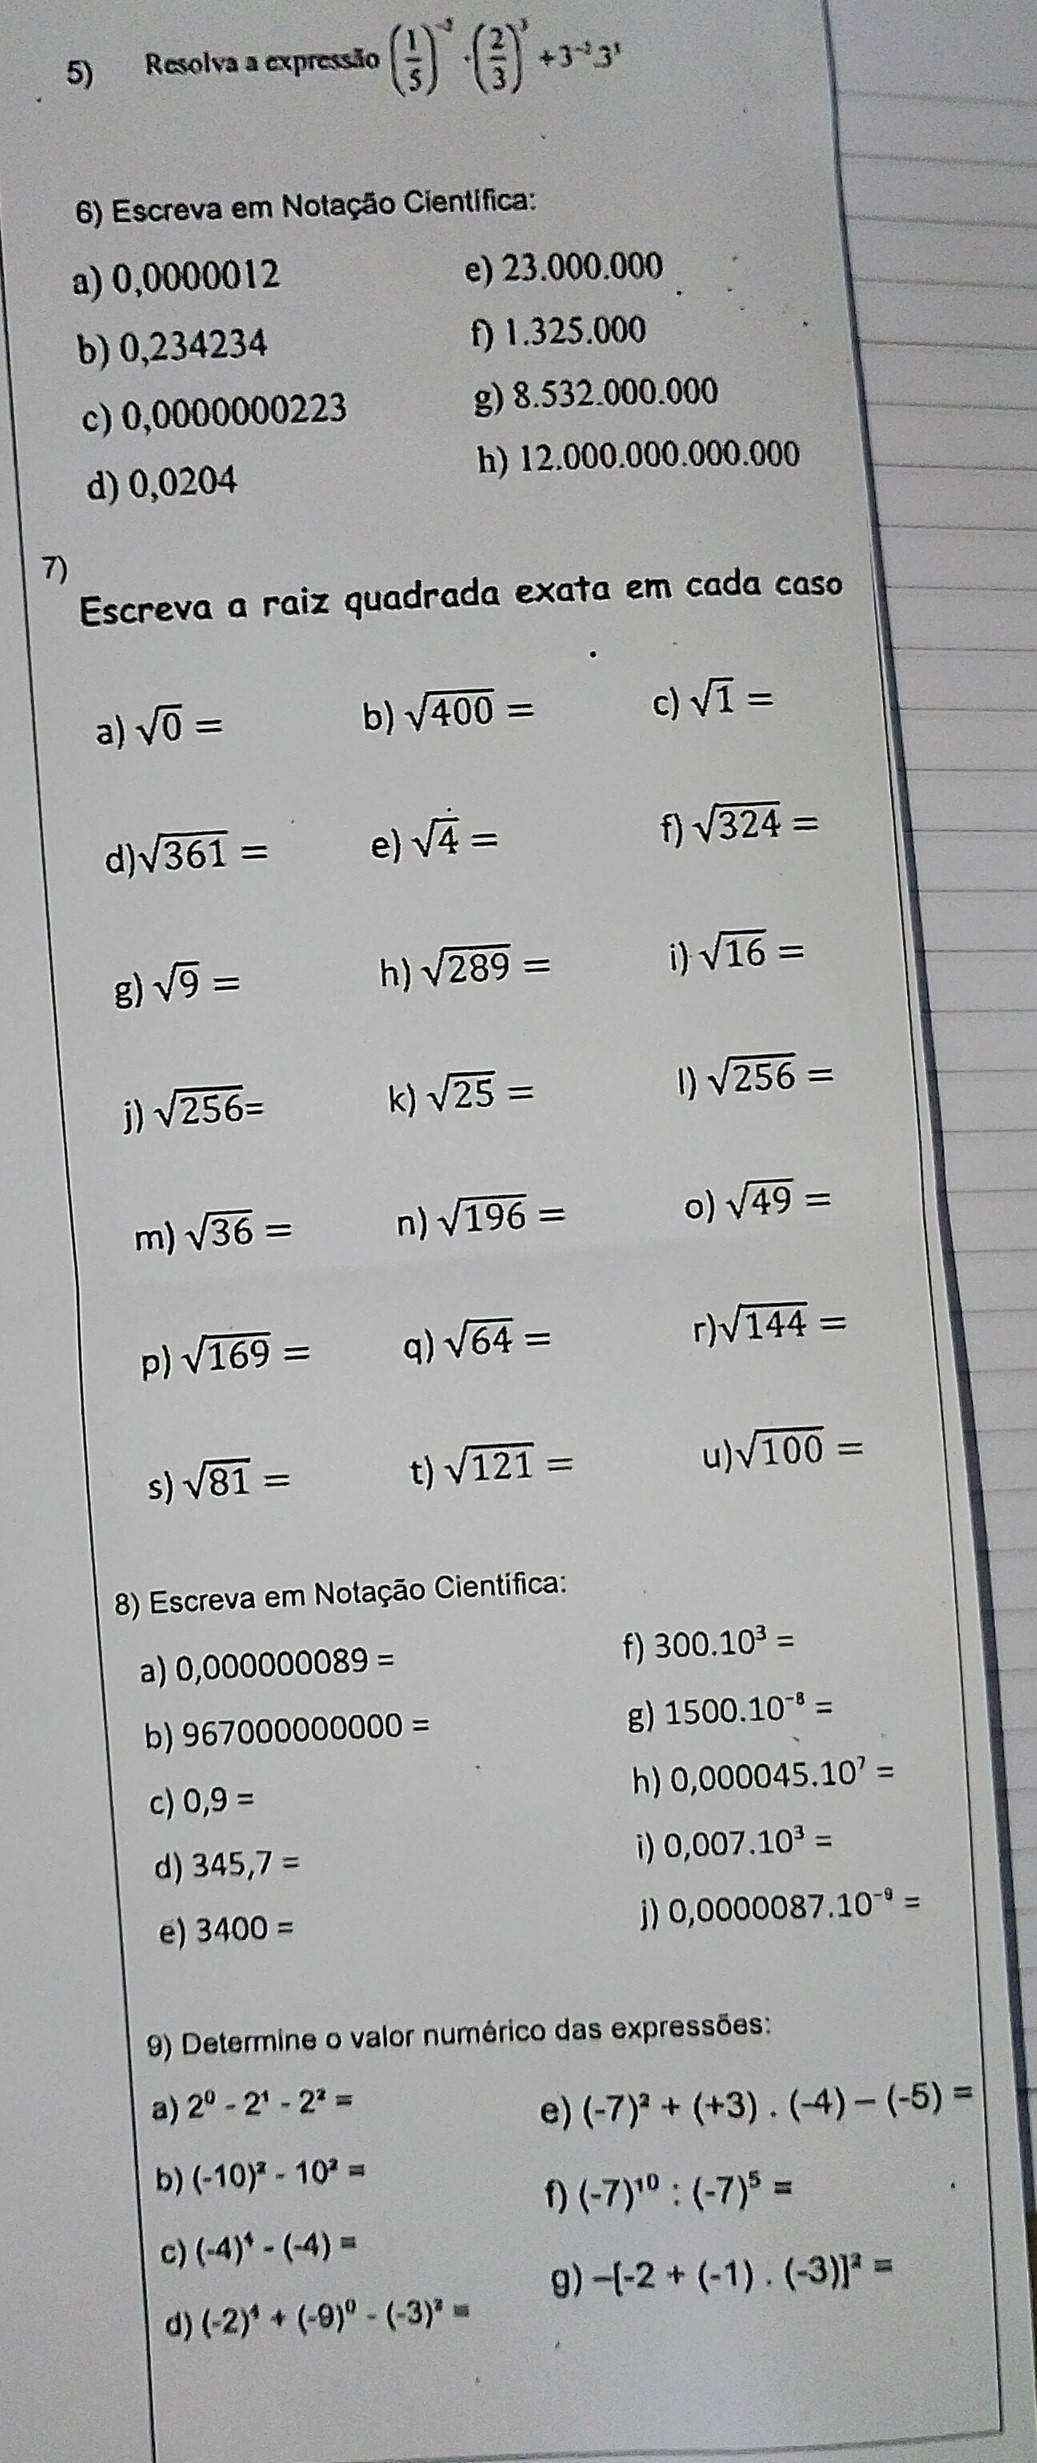 5) Resolva a expressão (1/5)⁻² · (2/3)³ + 3⁻².3¹
6) Escreva em Notação Científica:
a) 0,0000012 e) 23.000.000
b) 0,234234 f) 1.325.000
c) 0,0000000223 g) 8.532.000.000
d) 0,0204 h) 12.000.000.000.000
7)
Escreva a raiz quadrada exata em cada caso
a) √0 = b) √400 = c) √1 =
d)√361 = e) √4 = f) √324 =
g) √9 = h) √289 = i) √16 =
j) √256= k) √25 = l) √256 =
m) √36 = n) √196 = o) √49 =
p) √169 = q) √64 = r)√144 =
s) √81 = t) √121 = u)√100 =
8) Escreva em Notação Científica:
a) 0,000000089 = f) 300.10³ =
b) 967000000000 = g) 1500.10⁻⁸ =
c) 0,9 = h) 0,000045.10⁷ =
d) 345,7 = i) 0,007.10³ =
e) 3400 = j) 0,0000087.10⁻⁹ =
9) Determine o valor numérico das expressões:
a) 2⁰ - 2¹ - 2² = e) (-7)² + (+3) . (-4) – (-5) =
b) (-10)² - 10² = f) (-7)¹⁰ : (-7)⁵ =
c) (-4)⁴ - (-4) = g) –[-2 + (-1) . (-3)]² =
d) (-2)⁴ + (-9)⁰ - (-3)² =